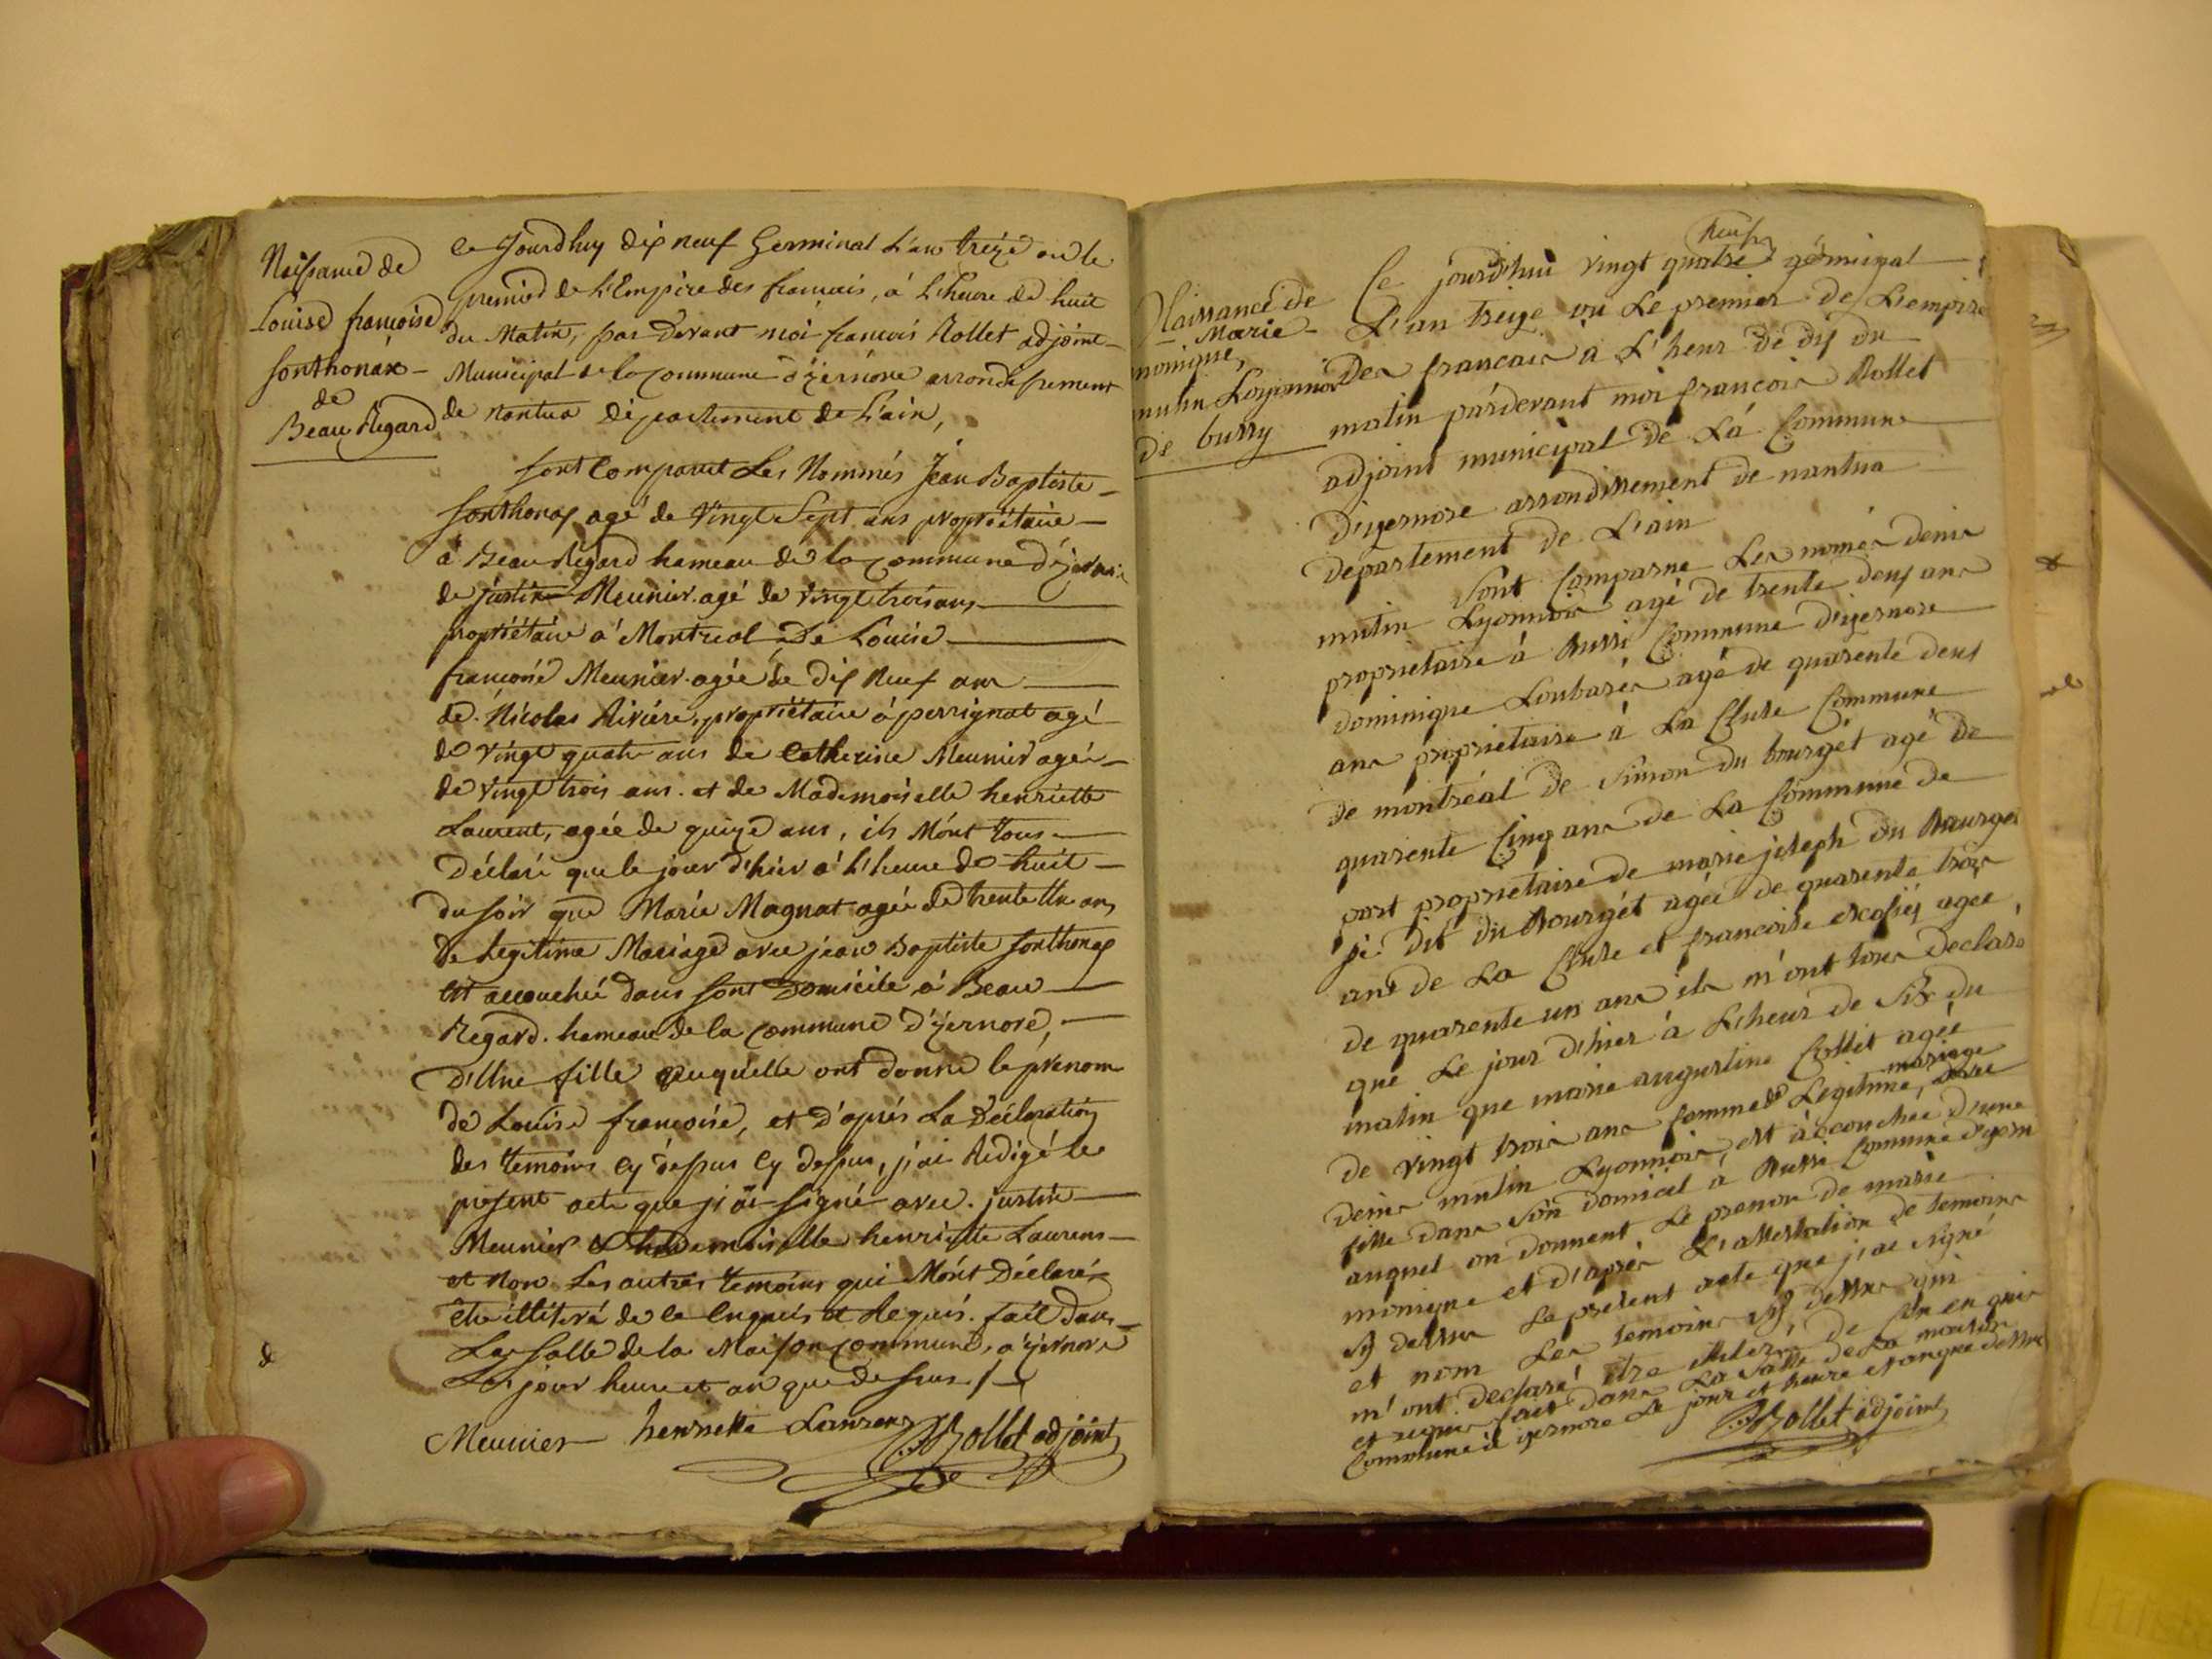 Naissance de
Louise francoise
sonthonax
de
Beau Regard
ce Jourdhuy dix neuf Germinal L'an treize ou le
premier de L'Empire des francais, à L'heure de huit
du Matin, par devant moi francois Rollet adjoint
Municipal de la Commune d'izernore arrondissement
de nantua département de L'ain,
sont Comparut Les Nommés Jean Baptiste
sonthonax agé de vingt Sept ans propriétaire
à Beau Regard hameau de la Commune d'izernore
de justin Meunier agé de vingt trois ans
propriétaire à Montreal, De Louise
francoise Meunier agée de dix Neuf ans
de Nicolas Rivière, propriétaire à perrignat agé
de vingt quatre ans de Catherine Meunier agée
de vingt trois ans. et de Mademoiselle henriette
Laurent, agée de quize ans, ils M'ont tous
Déclaré que le jour d'hier à L'heure de huit
du soir que Marie Magnat agée de trente Un ans
de Legitime Mariage avec jean Baptiste sonthonax
est accouchée dans sont Domicile à Beau
Regard. hameau de la Commune d'izernore,
D'Une fille auquelle ont donné le prénom
de Louise francoise, et d'après La Déclaration
des temoins cy dessus cy dessus, j'ai Rédigé le
present acte que j'ai signé avec justin
Meunier & Mademoiselle henriette Laurens
et Non Les autres temoins qui M'ont Déclarés
être illitéré de ce Enquis et Requis. fait dans
La salle de la Maison Commune, à izernore
Les jour heure et an que dessus
Meunier henriette Laurens F Rollet adjoint
Naissance de
Marie
monique,
mutin Loyonnois
de bussy
neuf
Ce jourd'hui vingt quatre gérminal
L'an treize ou Le premier de L'empire
Des francais à L'heur de dix du
matin pardevant moi francois Rollet
adjoint municipal de La Commune
d'izernore arrondissement de nantua
departement de L'ain
sont Comparue Les només denis
mutin Lyonnois agé de trente deux ans
proprietaire à Bussi Commune d'izernore
dominique Loubarés agé de quarente deux
ans proprietaire à La Cluse Commune
de montréal de simon du bourgét agé de
quarente Cinq ans de La Commune de
port proprietaire de marie joseph du Bourget
dit du Bourgét agée de quarente trois
ans de La Cluse et francoise agee
de quarente un ans ils m'ont tous déclaré
que Le jour d'hier à L'heur de Six du
matin que marie augustine Collet agée
mariage
de vingt trois ans femme de Legitime, avec
denis mutin Lyonnois, est accouchée d'une
fille dans son domicil à Bussi Commune d'izern
auquel on donnent Le prenom de marie
monique et d'après L'attestation de temoins
sy dessus Le présent acte que j'ai signé
et nom Les temoins sy dessus qui
m'ont declaré être illiteré, de ce enquis
et requis fait dans La salle de La maison
Commune à izernore Le jour et heure et an que dessus
F Rollet adjoint